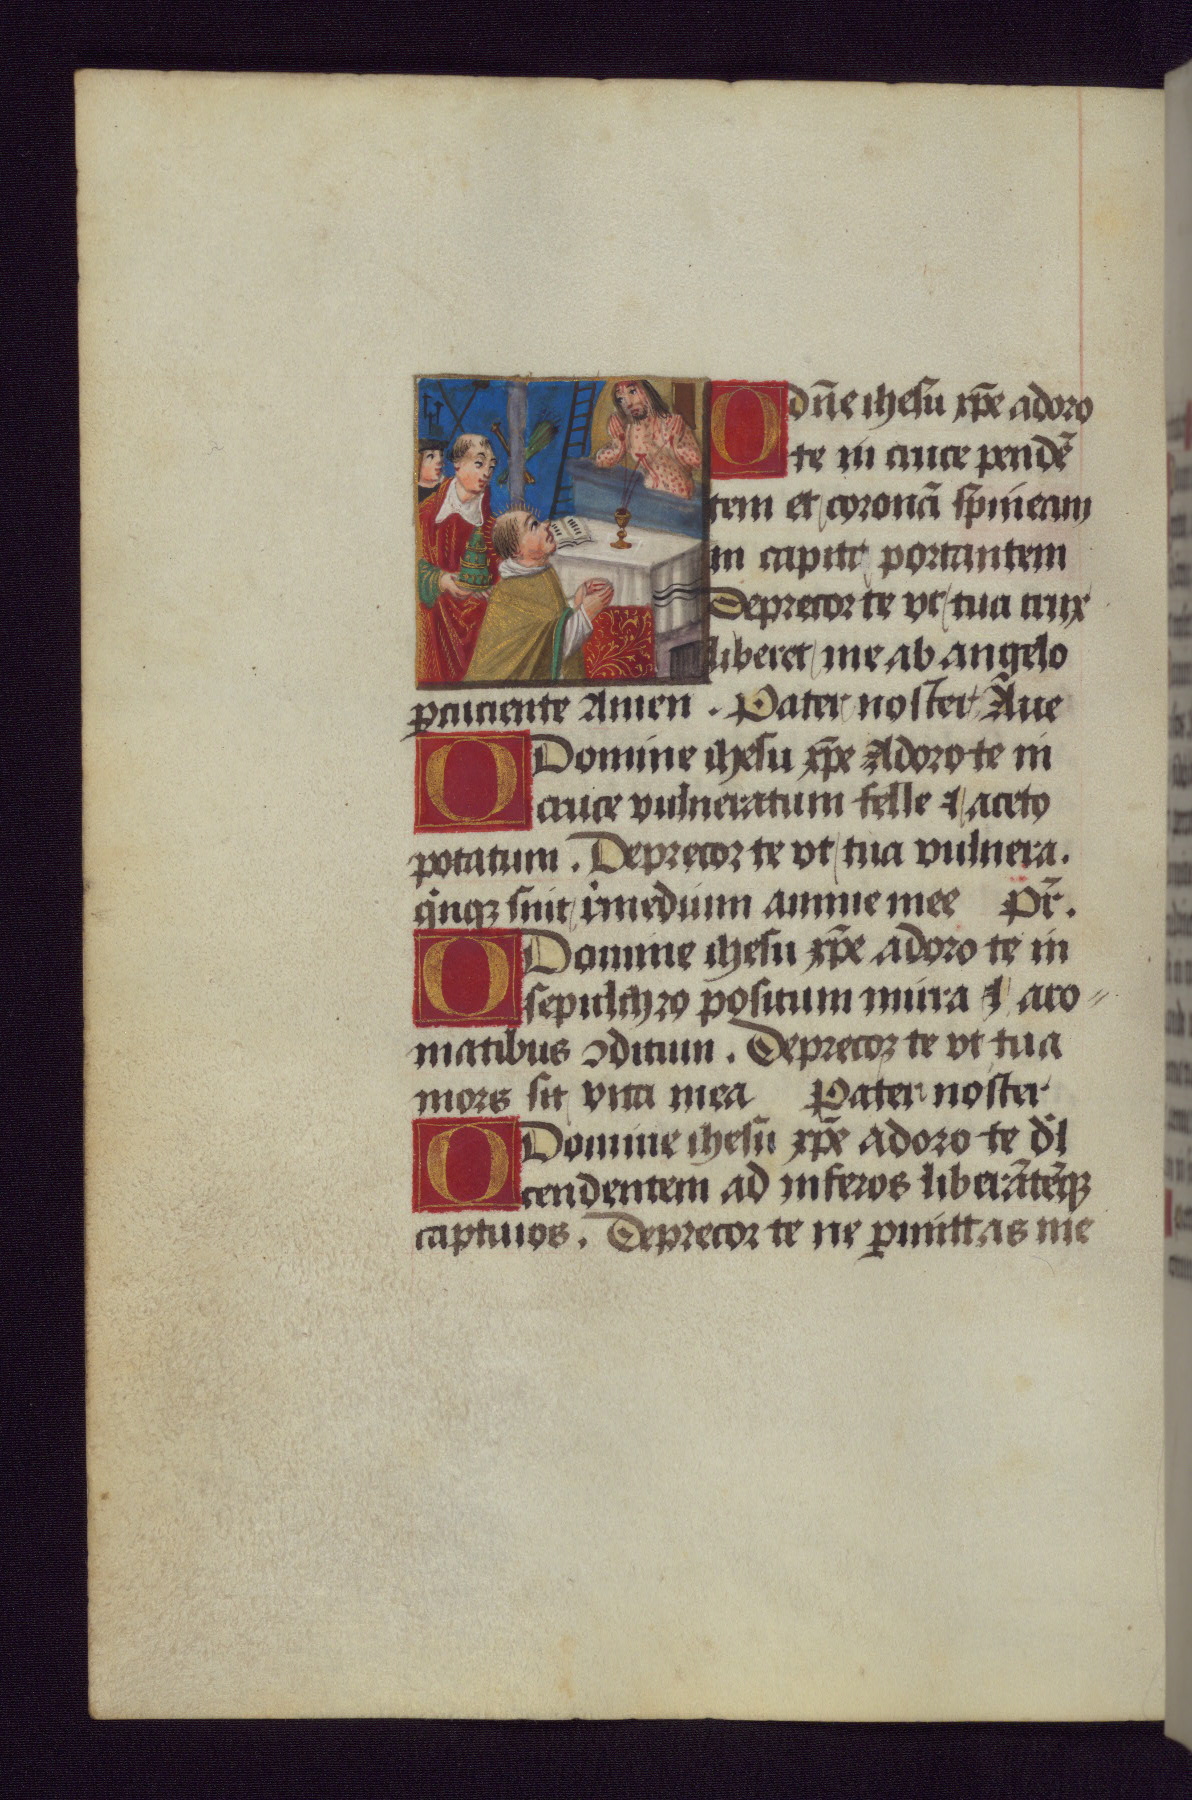 O dn̄e ihesu xp̄e adoro
te in cruce pendē
tem et coronā spineam
in capite portantem
Deprecor te vt tua crux
liberet me ab angelo
ꝑcuciente Amen . Pater noster Aue
O Domine ihesu xp̄e Adoro te in
cruce vulneratum felle ⁊ aceto
potatum . Deprecor te vt tua vulnera .
qͥnqꝫ sint rͥmedium anime mee Pr̄ .
O Domine ihesu xp̄e adoro te in
sepulchro positum mirra ⁊ aro⸗
matibus ꝯditum . Deprecor te vt tua
mors sit vita mea Pater noster
O Domine ihesū xp̄e adoro te
cendentem ad inferos liberātēqꝫ
captiuos . Deprecor te ne ꝑmittas me